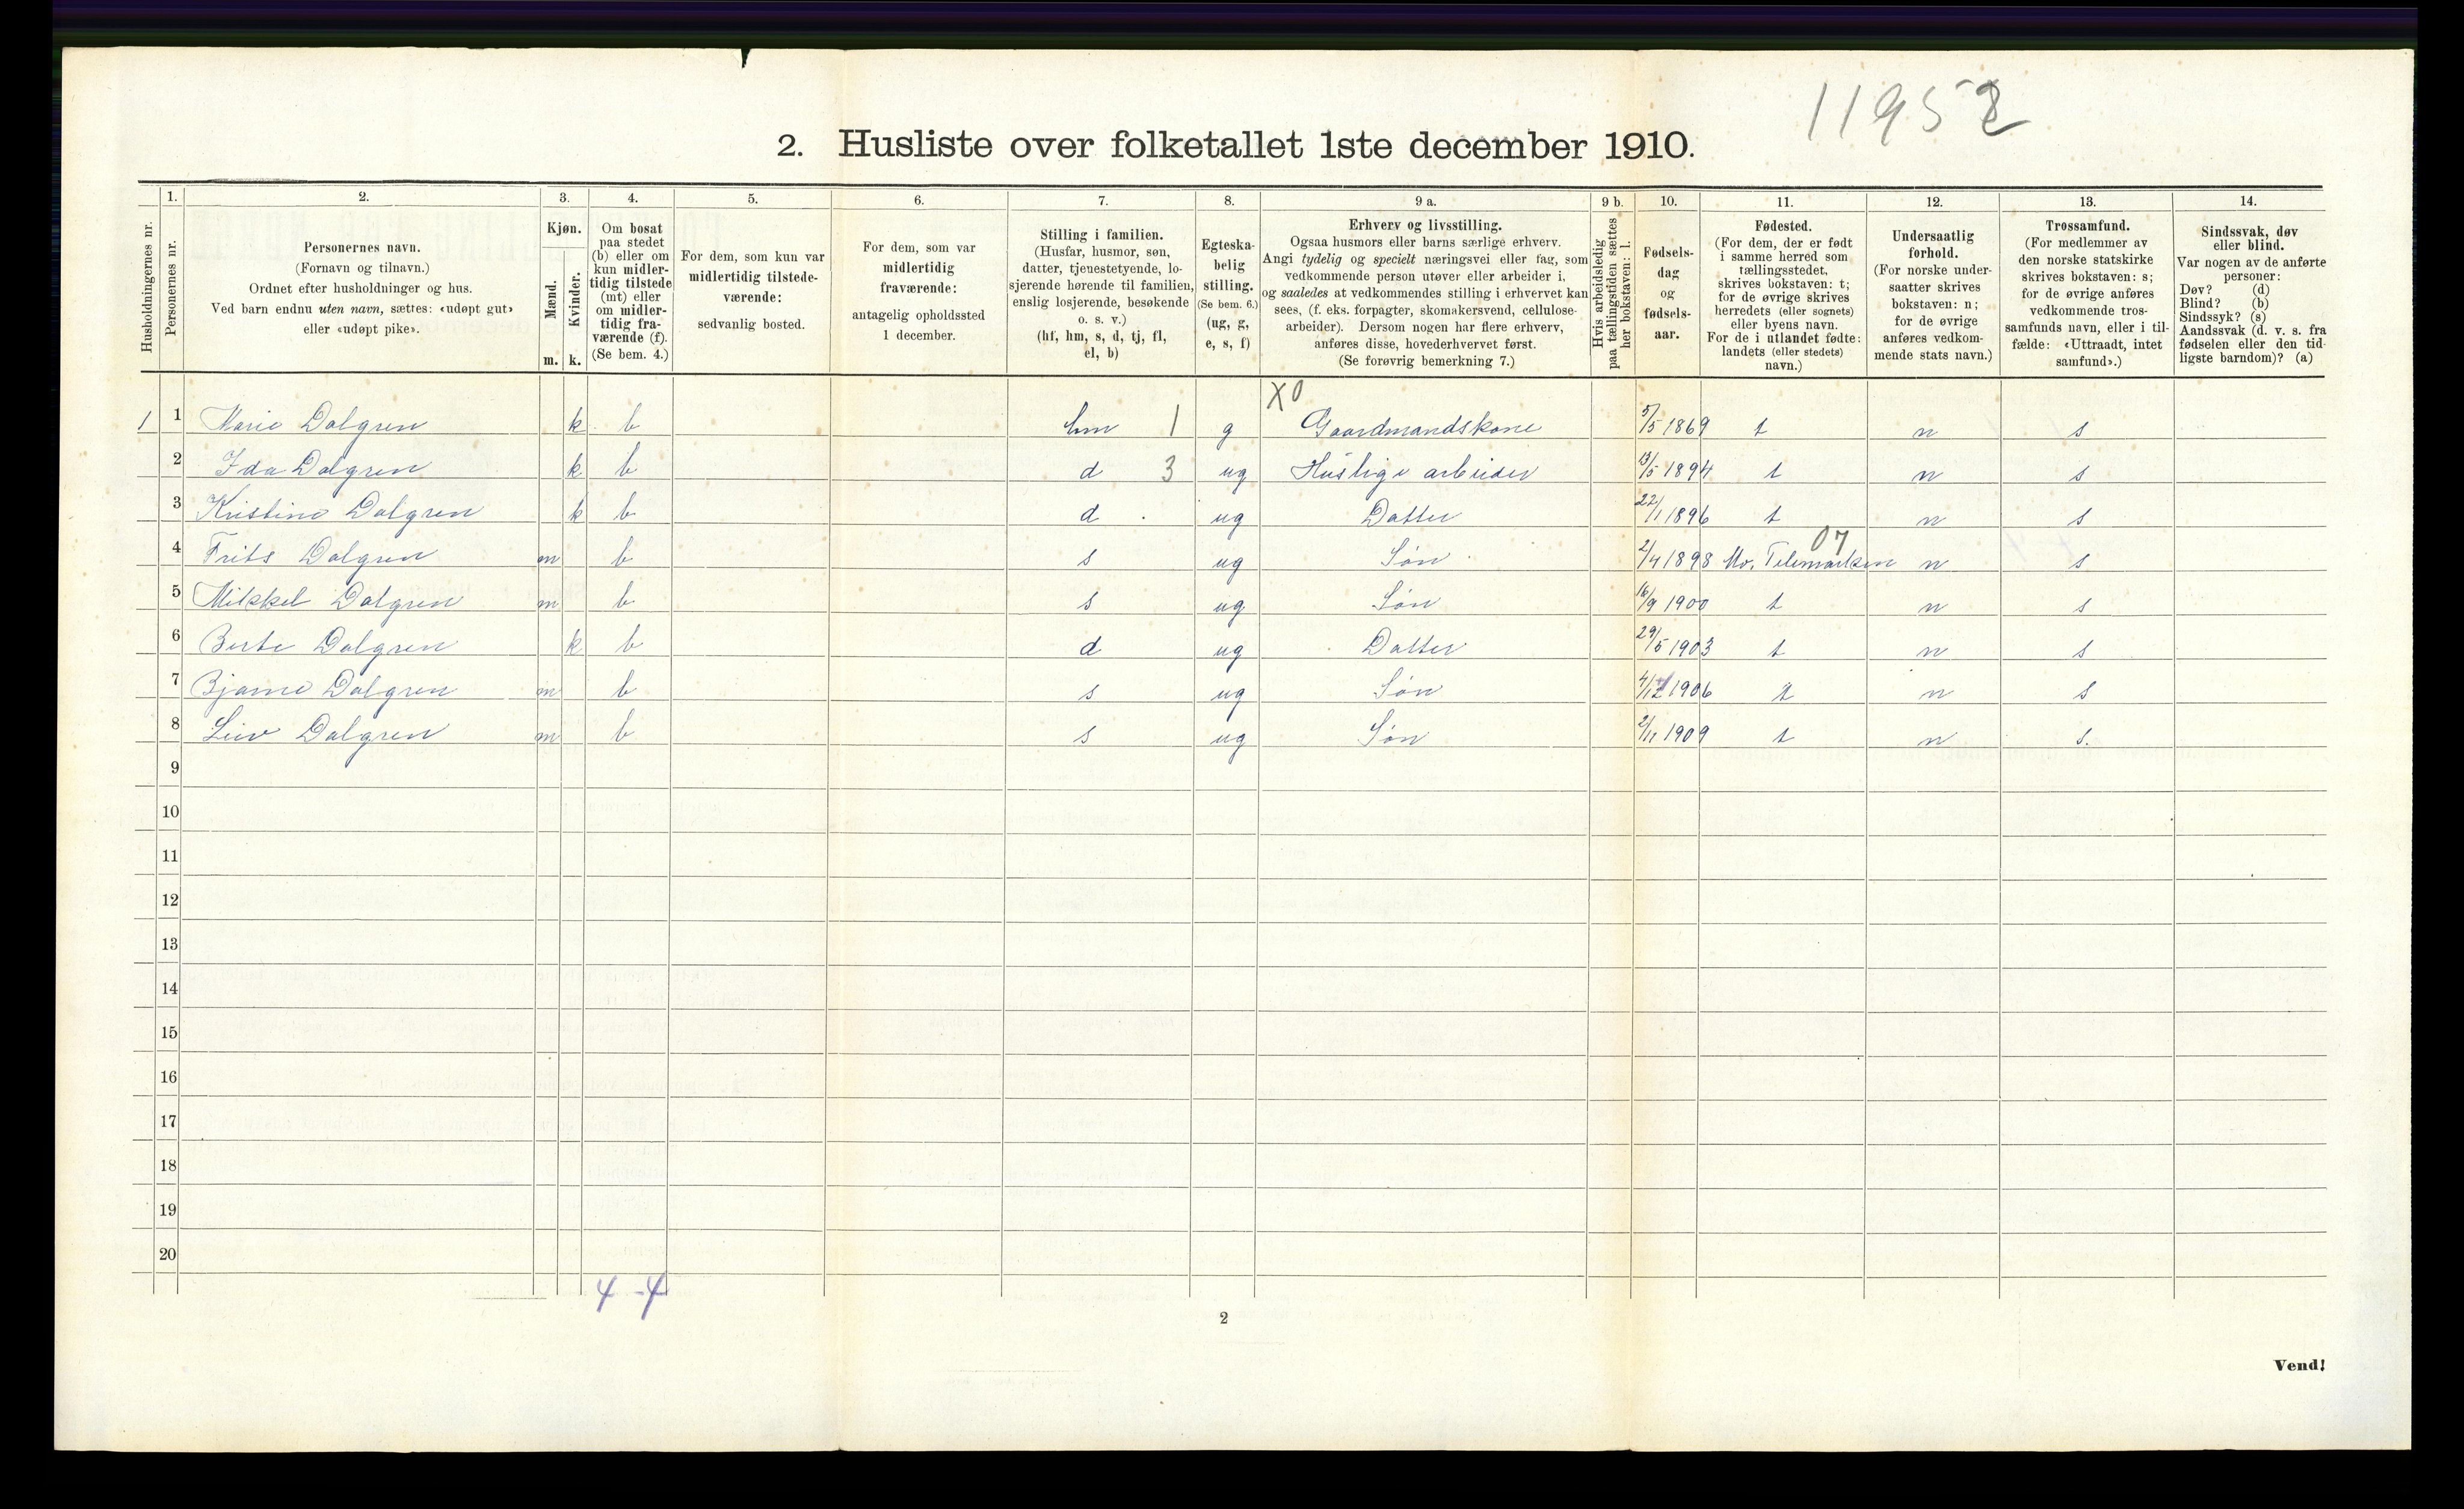 1195
2. Husliste over folketallet 1ste december 1910.
Husholdningernes nr.
1.
Personernes nr.
2.
Personernes navn.
(Fornavn og tilnavn.)
Ordnet efter husholdninger og hus.
Ved barn endnu uten navn, sættes: «udøpt gut»
eller «udøpt pike».
3.
Kjøn.
Mænd.
Kvinder.
m. k.
4.
Om bosat
paa stedet
(b) eller om
kun midler-
tidig tilstede
(mt) eller
om midler-
tidig fra-
værende (f).
(Se bem. 4.)
5.
For dem, som kun var
midlertidig tilstede-
værende:
sedvanlig bosted.
6.
For dem, som var
midlertidig
fraværende:
antagelig opholdssted
1 december.
7.
Stilling i familien.
(Husfar, husmor, søn,
datter, tjenestetyende, lo-
sjerende hørende til familien,
enslig losjerende, besøkende
o. s. v.)
(hf, hm, s, d, tj, fl,
el, b)
8.
Egteska-
belig
stilling.
(Se bem. 6.)
(ug, g,
e, s, f)
9 a.
Erhverv og livsstilling.
Ogsaa husmors eller barns særlige erhverv.
Angi tydelig og specielt næringsvei eller fag, som
vedkommende person utøver eller arbeider i,
og saaledes at vedkommendes stilling i erhvervet kan
sees, (f. eks. forpagter, skomakersvend, cellulose-
arbeider). Dersom nogen har flere erhverv,
anføres disse, hovederhvervet først.
(Se forøvrig bemerkning 7.)
9 b.
Hvis arbeidsledig
paa tællingstiden sættes
her bokstaven: l.
10.
Fødsels-
dag
og
fødsels-
aar.
11.
Fødested.
(For dem, der er født
i samme herred som
tællingsstedet,
skrives bokstaven: t;
for de øvrige skrives
herredets (eller sognets)
eller byens navn.
For de i utlandet fødte:
landets (eller stedets)
navn.)
12.
Undersaatlig
forhold.
(For norske under-
saatter skrives
bokstaven: n;
for de øvrige
anføres vedkom-
mende stats navn.)
13.
Trossamfund.
(For medlemmer av
den norske statskirke
skrives bokstaven: s;
for de øvrige anføres
vedkommende tros-
samfunds navn, eller i til-
fælde: «Uttraadt, intet
samfund».)
14.
Sindssvak, døv
eller blind.
Var nogen av de anførte
personer:
Døv? (d)
Blind? (b)
Sindssyk? (s)
Aandssvak (d. v. s. fra
fødselen eller den tid-
ligste barndom)? (a)
X0
1 1 Marie Dalgren k b hm 1 g Gaardmandskone 5/5 1869 t n s
2 Ida Dalgren k b d 3 ug Huslige arbeider 13/5 1894 t n s
3 Kristine Dalgren k b d ug Datter 22/1 1896 t n s
07
4 Frits Dalgren m b s ug Søn 2/4 1898 Mo, Telemarken n s
5 Mikkel Dalgren m b s ug Søn 16/9 1900 t n s
6 Berte Dalgren k b d ug Datter 29/5 1903 t n s
7 Bjarne Dalgren m b s ug Søn 4/12 1906 t n s
8 Leiv Dalgren m b s ug Søn 2/11 1909 t n s.
9
10
11
12
13
14
15
16
17
18
19
20
4 - 4
2
Vend!